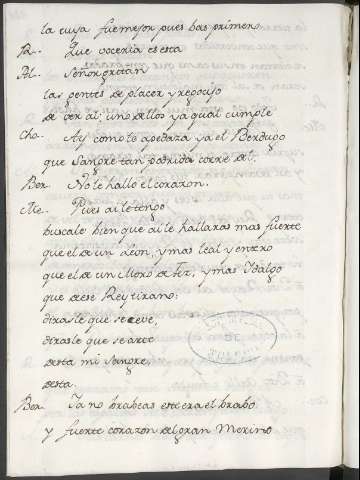 la cuya fue mejor pues has primero
R.. Que voceria es esta
Al.. Señor gritan
las gentes de placer y regocijo
de ver al; uno dellos ya qual cumple
Cho.. Asi como lo apedaza ya el Berdugo
que Sangre tan podrida corre del;
Ber.. No le hallo el corazon.
Me.. Pues ai le tengo
buscale bien que ai le hallaras mas fuerte
que el de un Leon, y mas leal y entero
que el de un Moro de Fez, y mas Idalgo
que de ese Rey tirano:
dirasle que se ceve,
dirasle que se arte
desta mi Sangre,
desta.
Ber.. Ya no brabeas este era el brabo
y fuerte corazon del gran Merino